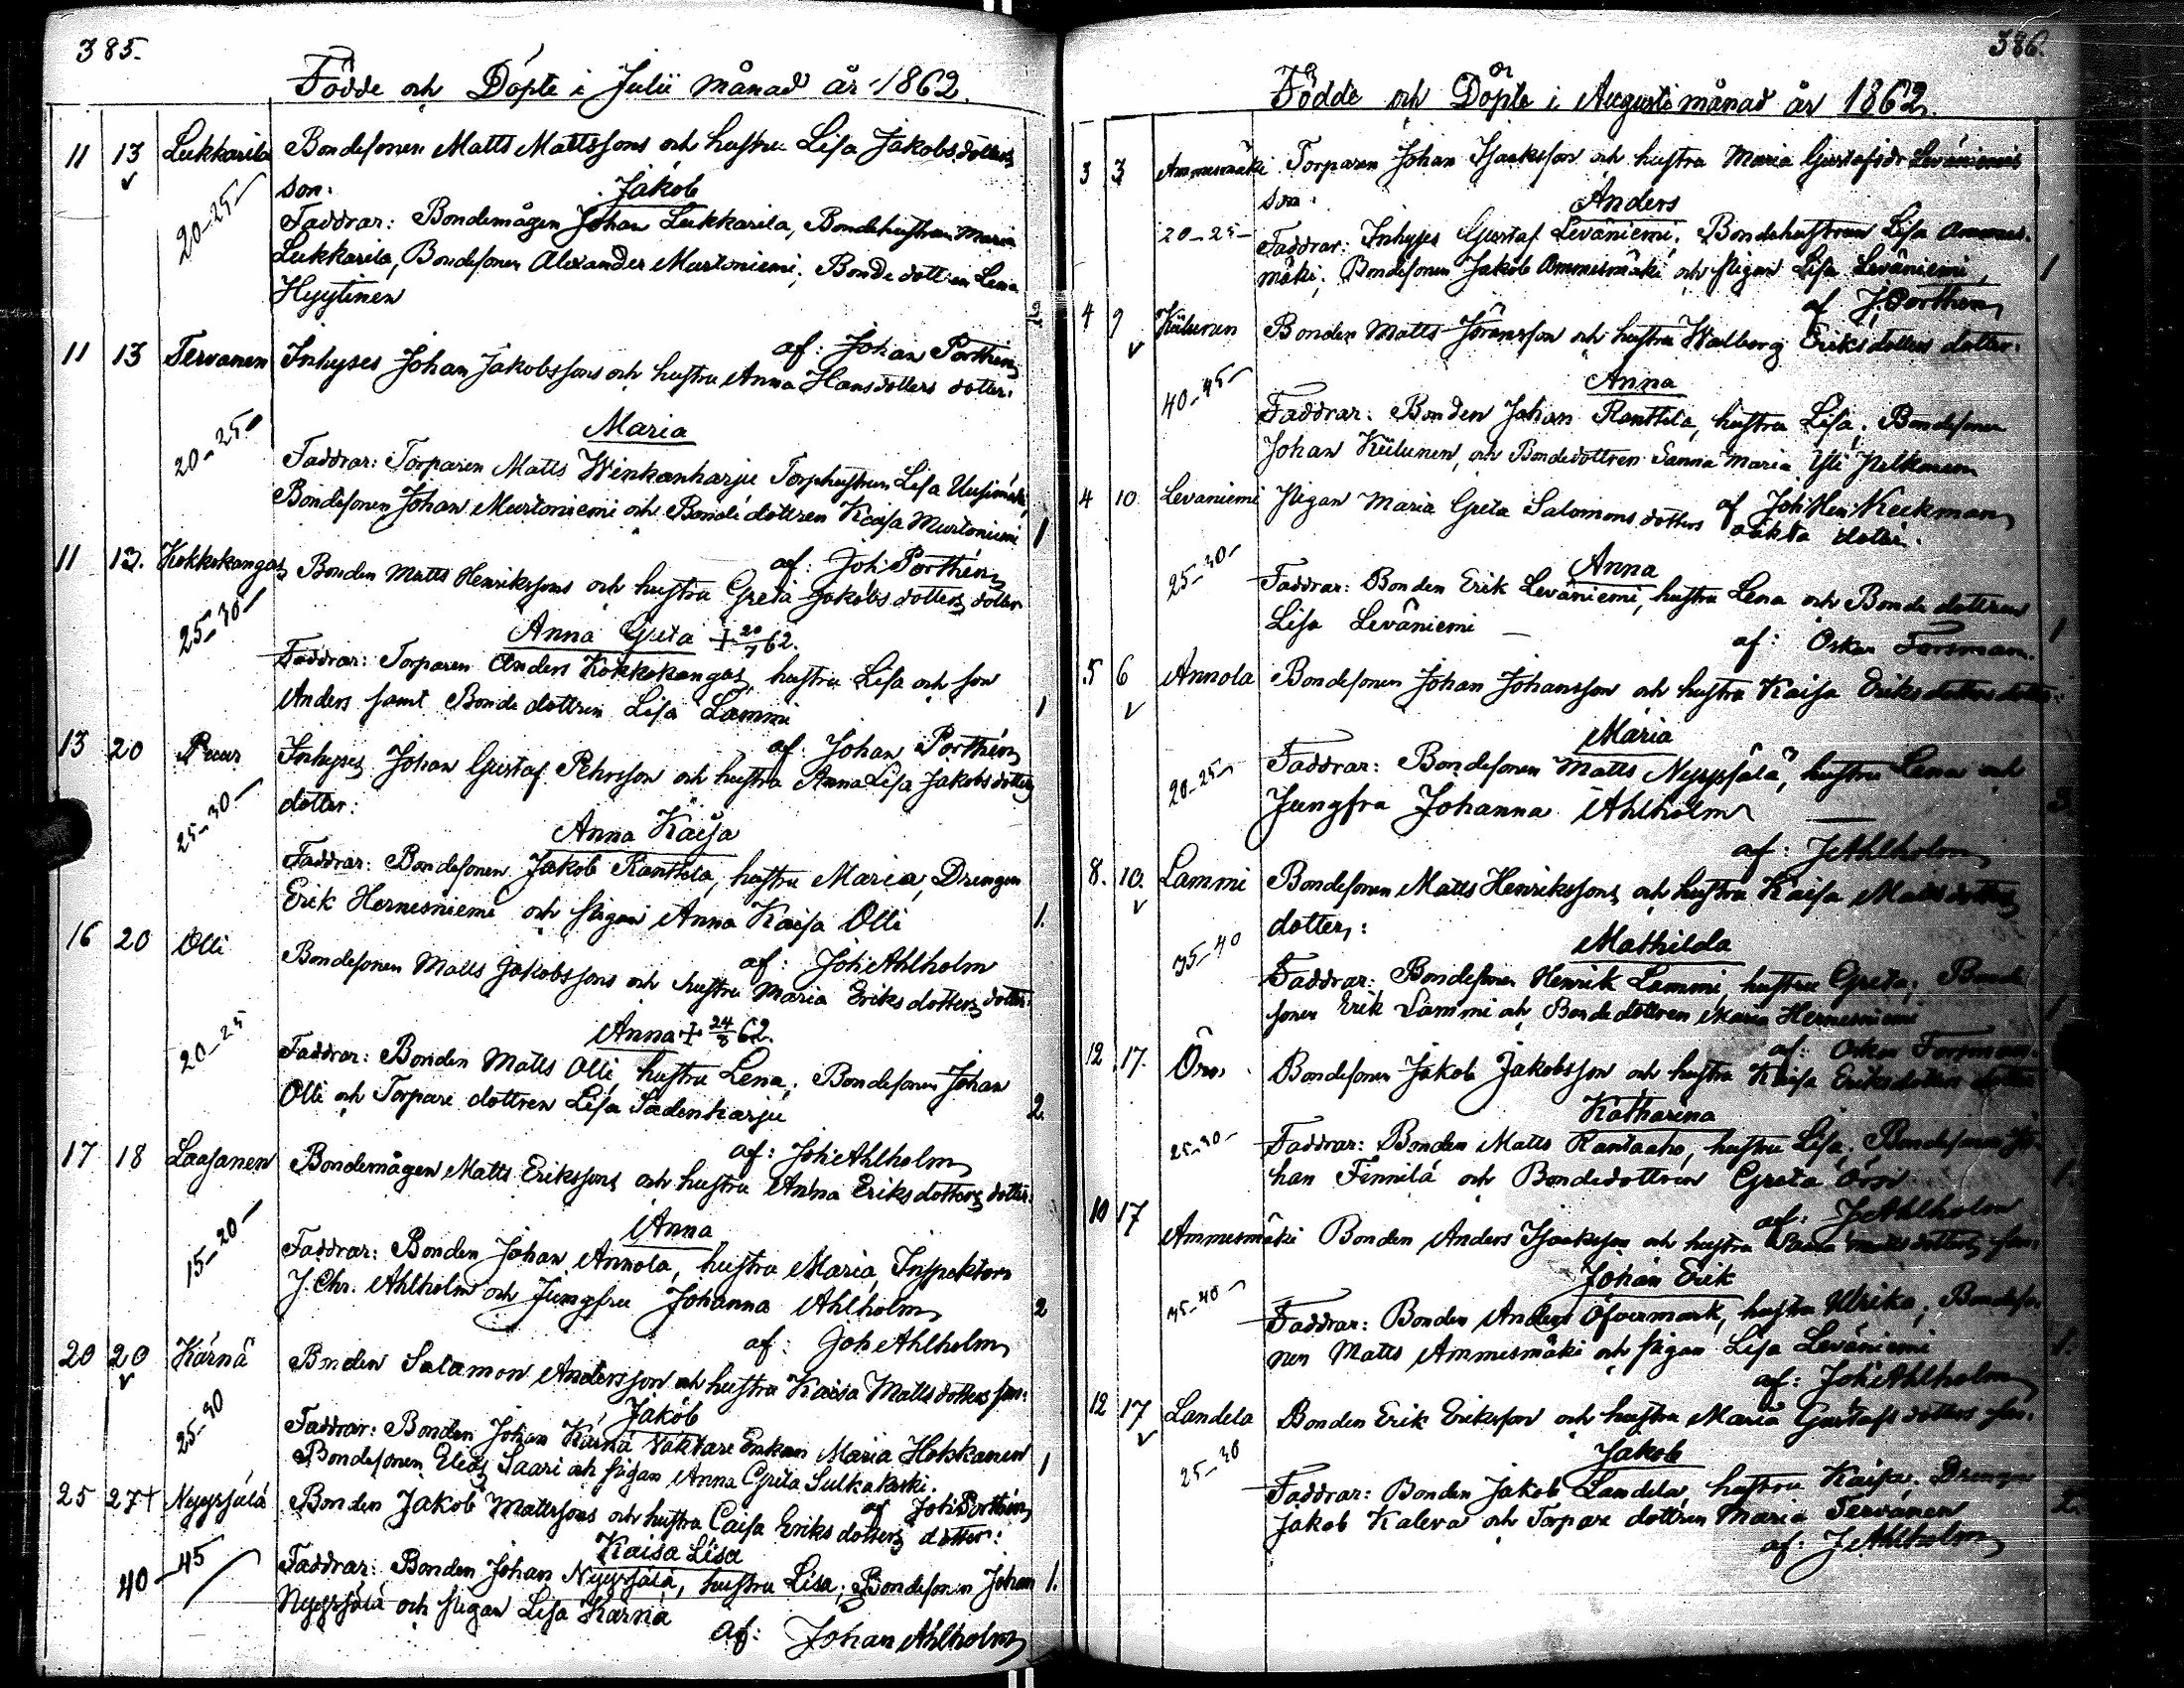 385.
Födde och Döpte i Julii månad år 1862.
11 13 Lukkarila Bondesonen Matts Mattssons och hustru Lisa Jakobsdotters
son: Jakob
20-25 Faddrar: Bondemågen Johan Lukkarila, Bondehustrun Maria
Lukkarila, Bondesonen Alexander Murtoniemi, Bondedottren Lena
Hyytinen 2
af: Johan Porthén
11 13 Tervanen Inhyses Johan Jakobssons och hustru Anna Hansdotters dotter:
Maria
20-25 Faddrar: Torparen Matts Winkanharju Torphustrun Lisa Uusimäki,
Bondesonen Johan Murtoniemi och Bondedottren Kaisa Murtoniemi 1
af: Joh: Porthén
11 13. Kokkokangas Bonden Matts Henrikssons och hustru Greta Jakobs dotters dotter
25-30 Anna Greta + 20/7 62.
Faddrar: Torparen Anders Kokkokangas, hustru Lisa och son
Anders samt Bonde dottren Lisa Lammi 1
af. Johan Porthén
13 20 Puur Inhyses Johan Gustaf Pehrsson och hustru Anna Lisa Jakobsdotters
dotter:
25-30 Anna Kaisa
Faddrar: Bondesonen Jakob Ranttila, hustru Maria, Drengen
Erik Hernesniemi och pigan Anna Kaisa Olli 1.
af: Joh: Ahlholm
16 20 Olli Bondesonen Matts Jakobssons och hustru Maria Eriks dotters dotter:
Anna + 24/8 62.
20-25 Faddrar: Bonden Matts Olli, hustru Lena, Bondesonen Johan
Olli och Torpare dottren Lisa Sadenharju 2
af: Joh: Ahlholm
17 18 Laajanen Bondemågen Matts Erikssons och hustru Anna Eriksdotters dotter:
Anna
15-20 Faddrar: Bonden Johan Annola, hustru Maria, Inspektorn
J. Chr. Ahlholm och Jungfru Johanna Ahlholm 2
af: Joh Ahlholm
20 20 Kärnä Bonden Salamon Andersson och hustru Kaisa Mattsdotters son:
Jakob
25-30 Faddrar: Bonden Johan Kärnä Väktare Enkan Maria Hotskanen
Bondesonen Elias Saari och pigan Anna Greta Sulkakoski. 1
af Joh: Porthén
25 27+ Nyyssälä Bonden Jakob Mattssons och hustru Caisa Eriks dotters dotter:
Kaisa Lisa
40-45 Faddrar: Bonden Johan Nyyssälä, hustru Lisa; Bondesonen Johan 1.
Nyyssälä och pigan Lisa Kärnä
af: Johan Ahlholm
386.
Födde och Döpte i Augusti månad år 1862.
3 3 Ammesmäki Torparen Johan Isaksson och hustru Maria Gustafsdr Leväniemis
son: Anders
20-25 Faddrar: Inhyses Gustaf Leväniemi, Bondehustrun Lisa Ammes-
mäki, Bondesonen Jakob Ammesmäki och pigan Lisa Leväniemi 1
af J: Porthén
4 9 Kiilunen Bonden Matts Göransson och hustru Walborg Eriksdotters dotter:
Anna
40-45 Faddrar: Bonden Johan Ranttila, hustru Lisa, Bondesonen
Johan Kiilunen, och Bondedottren Sanna Maria Yli Pelkonen
af Joh: Hen: Keckman
4 10 Levaniemi Pigan Maria Greta Salomons dotters oäkta dotter.
Anna
25-30 Faddrar: Bonden Erik Leväniemi, hustru Lena och Bonde dottren
Lisa Leväniemi 1
af: Oskar Forsman.
5 6 Annola Bondesonen Johan Johansson och hustru Kaisa Eriksdotters dotter:
Maria
20-25 Faddrar: Bondesonen Matts Nyyssälä, hustru Lena och
Jungfru Johanna Ahlholm 3.
af: J Ahlholm
8. 10. Lammi Bondesonen Matts Henrikssons och hustru Kaisa Matts dotters
dotter:
35-40 Mathilda
Faddrar: Bondesonen Henrik Lammi, hustru Greta; Bonde
sonen Erik Lammi och Bonde dottren Maria Hernesniemi 1
af: Oskar Forsman.
12 17. Örn Bondesonen Jakob Jakobsson och hustru Kaisa Eriksdotters dotter
Katharina
25-30 Faddrar: Bonden Matts Rantaaho, hustru Lisa, Bondesonen Jo-
han Finnilä och Bondedottren Greta 1.
af: J Ahlholm
10 17 Ammesmäki Bonden Anders Isaksson och hustru Matts dotters son:
Johan Erik
35-40 Faddrar: Bonden Anders Öfvermark, hustru Ulrika, Bondeso-
nen Matts Ammesmäki och pigan Lisa Leväniemi 1.
af: Joh: Ahlholm
12 17 Landela Bonden Erik Eriksson och hustru Maria Gustafs dotters son:
Jakob
25-30 Faddrar: Bonden Jakob Landela, hustru Kaisa, Drengen
Jakob Kaleva och Torpare dottren Maria Tervanen 2.
af: J Ahlholm